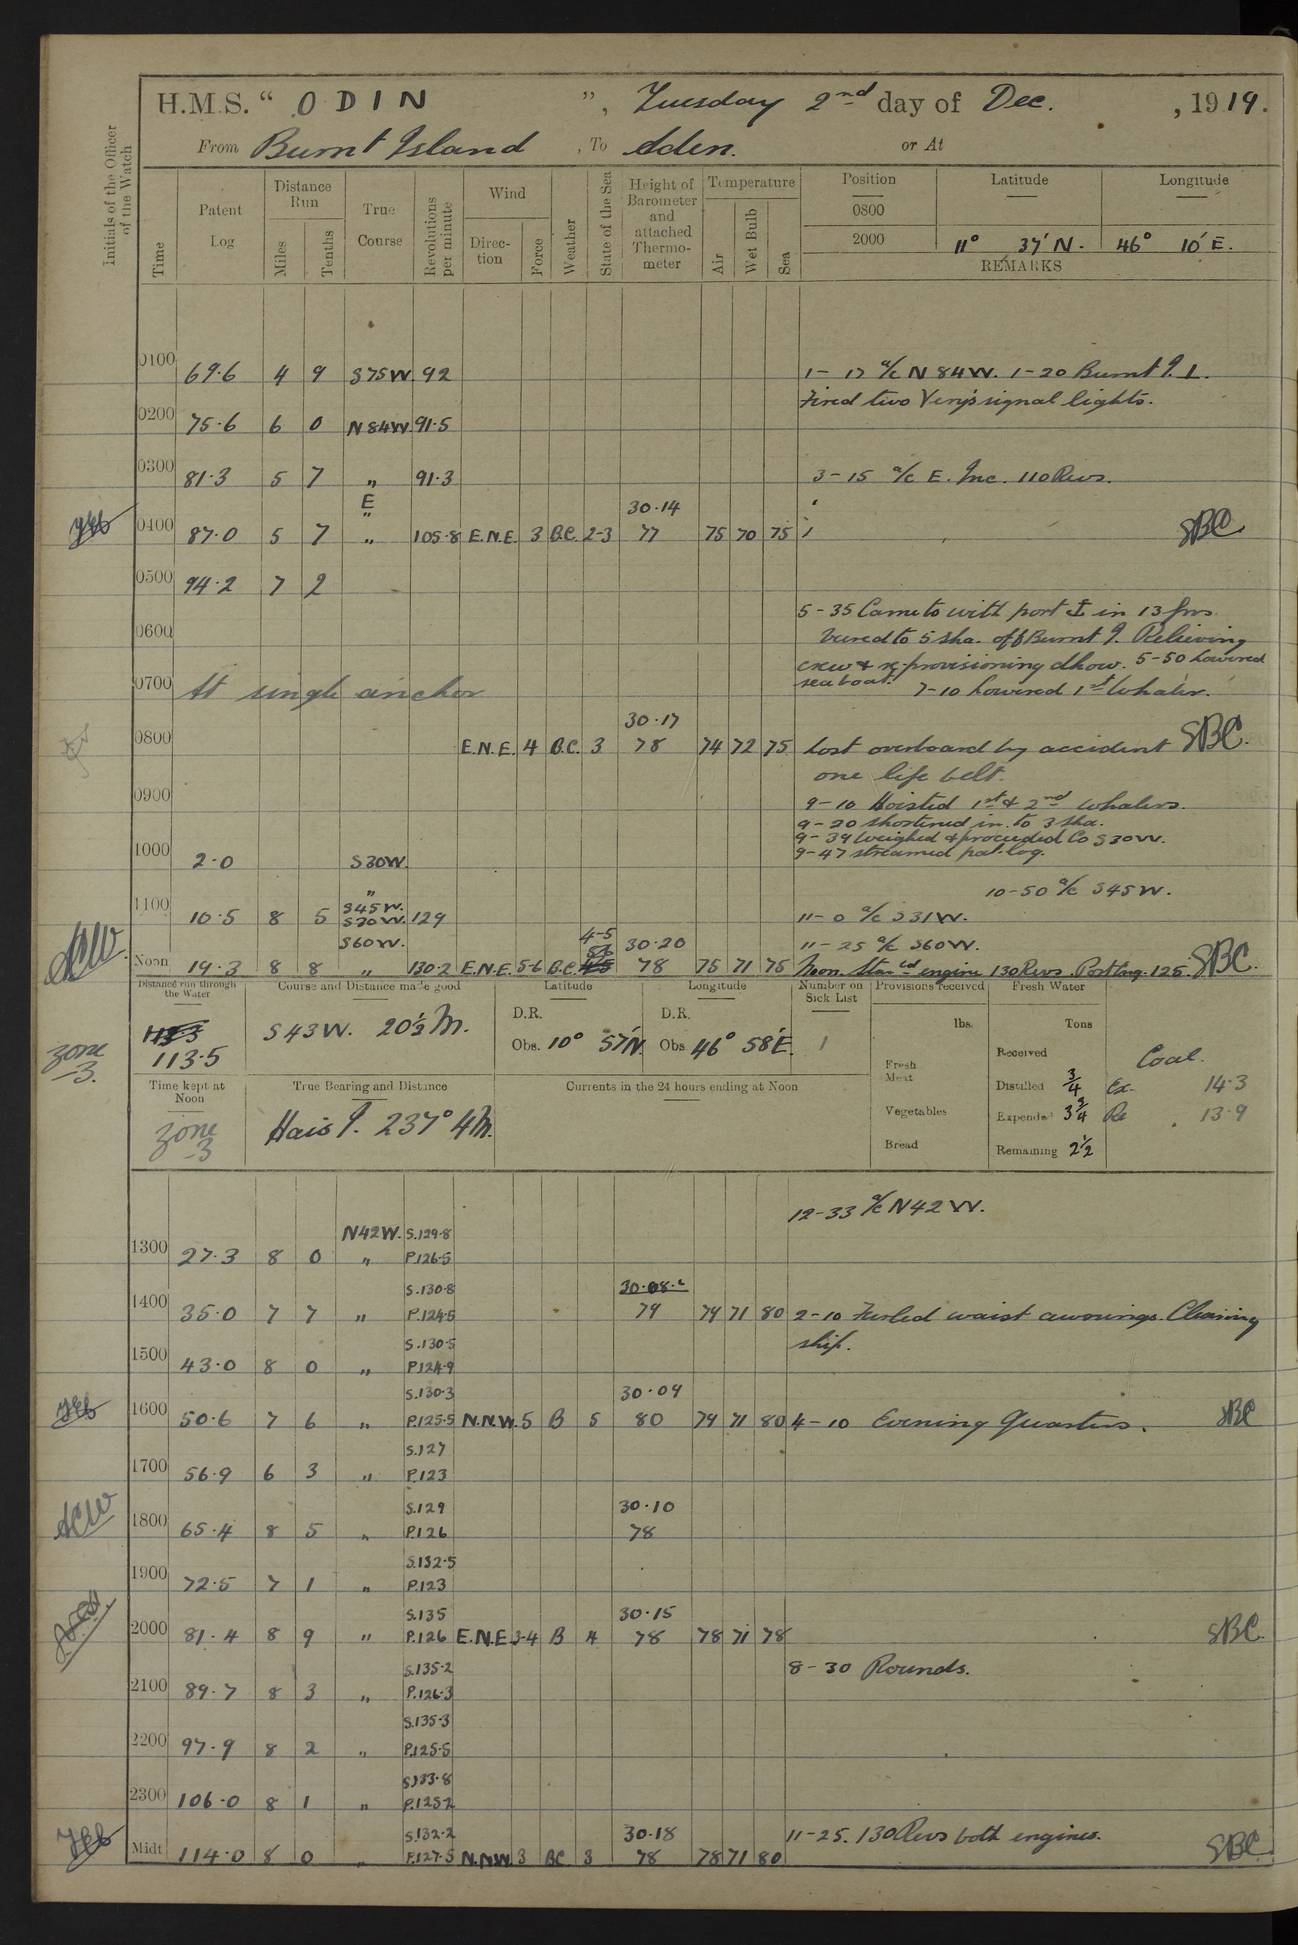 H.M.S. " ODIN ", Tuesday 2nd day of Dec. , 1919.
From Burnt Island , To Aden. or At
Initials of the Officer of the Watch
Time
Patent Log
Distance Run
Miles
Tenths
True Course
Revolutions per minute
Wind
Direction
Force
Weather
State of the Sea
Height of Barometer and attached Thermometer
Temperature
Air
Wet Bulb
Sea
Position Latitude Longitude
0800
2000 11° 37' N. 46° 10' E.
REMARKS
0100 69.6 4 9 S75W 92 1-17 a/c N84W. 1-20 Burnt I. 1.
Fired two Very's signal lights.
0200 75.6 6 0 N84W. 91.5
0300 81.3 5 7 " 91.3 3-15 a/c E. Inc. 110 Revs.
E
" 30.14
0400 87.0 5 7 " 105.8 E.N.E. 3 B.C. 2-3 77 75 70 75 SBC
0500 94.2 7 2
5-35 Came to with port ⚓ in 13 fms
0600 veered to 5 sha. off Burnt I. Relieving
crew & re-provisioning dhow. 5-50 Lowered
0700 At single anchor seaboat. 7-10 Lowered 1st Whaler.
30.17
0800 E.N.E. 4 B.C. 3 78 74 72 75 Lost overboard by accident SBC.
one life belt.
0900 9-10 Hoisted 1st & 2nd whalers.
9-20 shortened in to 3 sha.
9-39 weighed & proceeded Co S30W.
1000 2.0 S30W. 9-47 streamed pat. log.
" 10-50 a/c S45W.
S45W.
1100 10.5 8 5 S30W. 129 11-0 a/c S31W.
S60W. 4-5 30.20 11-25 a/c S60W.
Noon 19.3 8 8 " 130.2 E.N.E. 5-6 B.C. 78 75 71 75 Noon. Starbd engine 130 Revs. Port Eng. 125. SBC.
Distance run through the Water
113.5
Course and Distance made good
S43W. 20½ M.
Latitude
D.R.
Obs. 10° 57' N.
Longitude
D.R.
Obs. 46° 58' E.
Number on Sick List
1
Provisions received
lbs.
Fresh Meat
Vegetables
Bread
Fresh Water
Tons
Received
Distilled ¾
Expended 3¾
Remaining 2½
Coal.
Ex. 14.3
Re 13.9
zone
-3.
Time kept at Noon
zone
-3
True Bearing and Distance
Hais I. 237° 4 M.
Currents in the 24 hours ending at Noon
12-33 a/c N42W.
N42W. S.129.8
1300 27.3 8 0 " P.126.5
S.130.8 30.08
1400 35.0 7 7 " P.124.5 79 79 71 80 2-10 Furled waist awnings. Cleaning
S.130.5 ship.
1500 43.0 8 0 " P.124.9
S.130.3 30.09
1600 50.6 7 6 " P.125.5 N.N.W. 5 B 5 80 79 71 80 4-10 Evening Quarters. SBC
S.127
1700 56.9 6 3 " P.123
S.129 30.10
1800 65.4 8 5 " P.126 78
S.132.5
1900 72.5 7 1 " P.123
S.135 30.15
2000 81.4 8 9 " P.126 E.N.E 3-4 B 4 78 78 71 78 SBC.
S.135.2 8-30 Rounds.
2100 89.7 8 3 " P.126.3
S.135.3
2200 97.9 8 2 " P.125.5
S.133.8
2300 106.0 8 1 " P.125.2
S.132.2 30.18 11-25. 130 Revs both engines.
Midt 114.0 8 0 " P.127.5 N.N.W. 3 BC 3 78 78 71 80 SBC